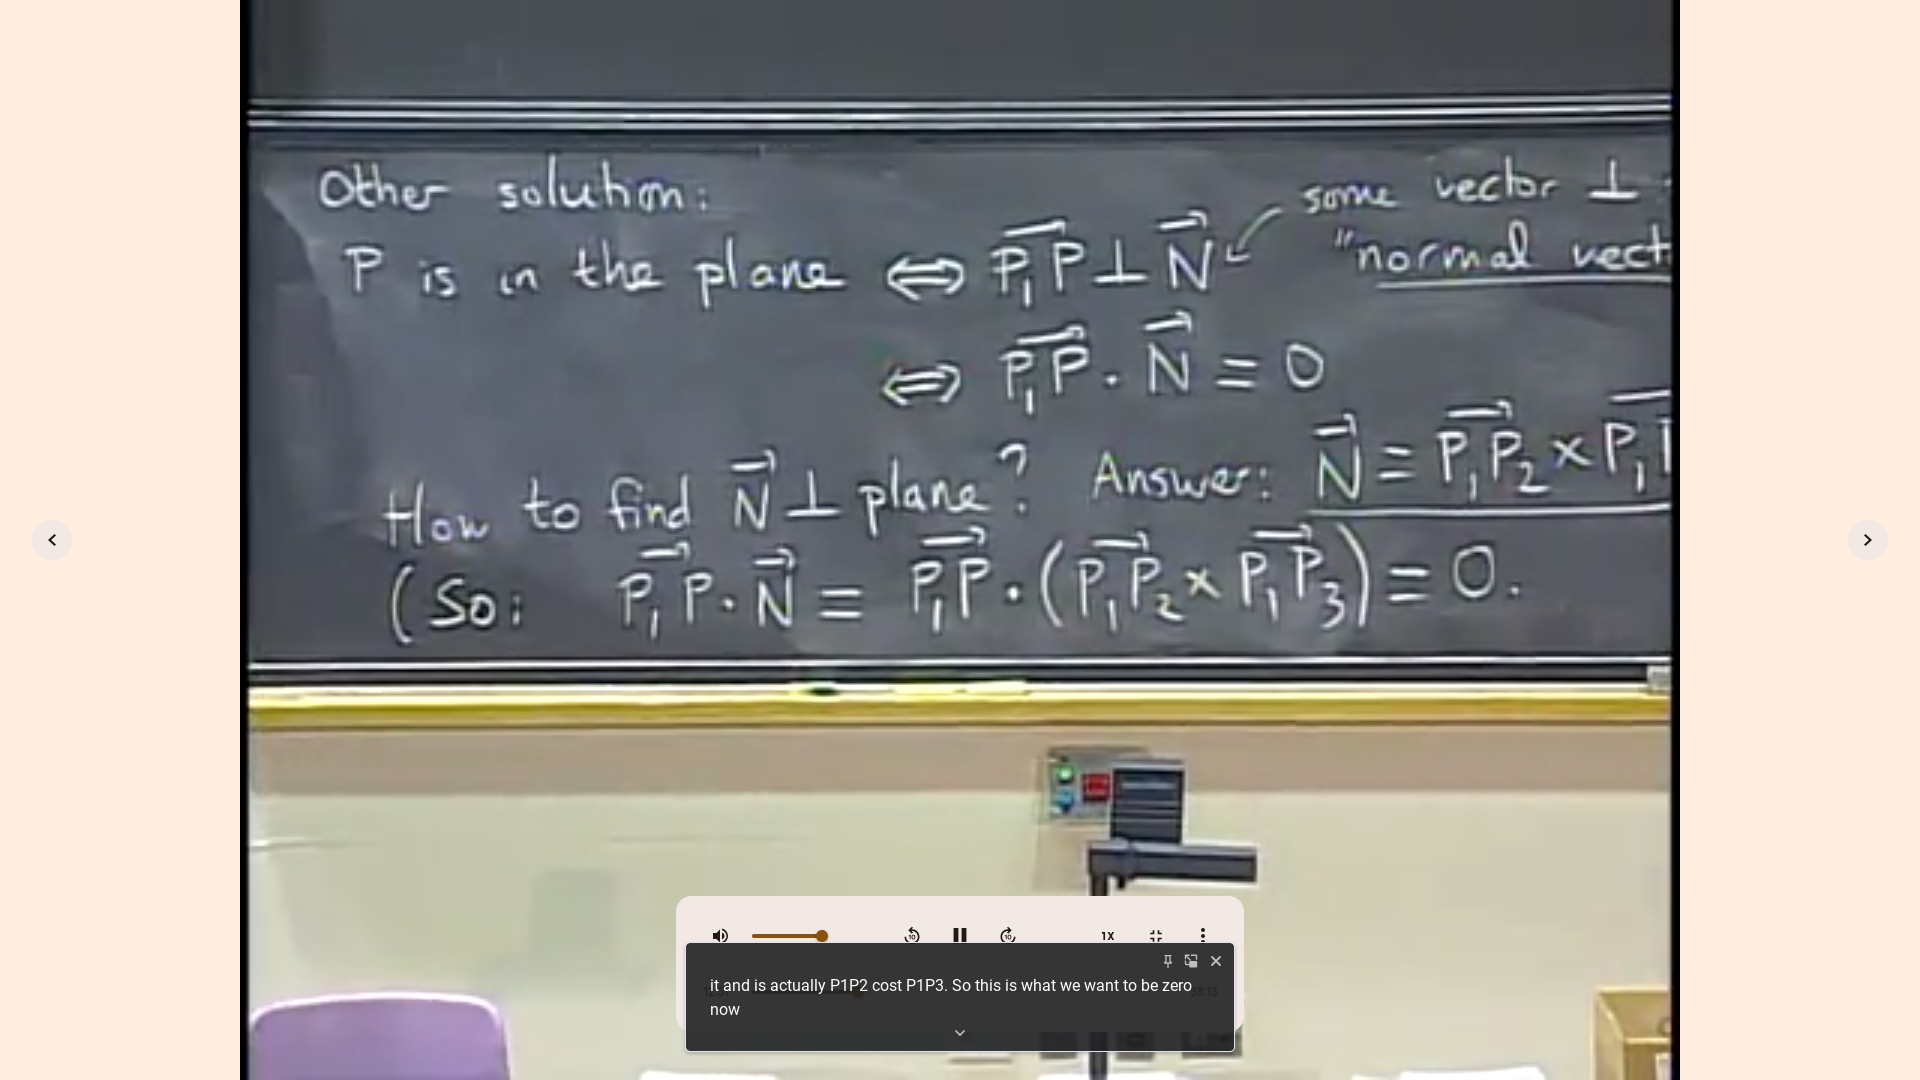 Other solution:
some vector ⊥
P is in the plane ⟺ P₁P ⊥ N
"normal vect
⟺ P₁P · N = 0
How to find N ⊥ plane? Answer: N = P₁P₂ × P₁
(So: P₁P · N = P₁P · (P₁P₂ × P₁P₃) = 0.
1X
it and is actually P1P2 cost P1P3. So this is what we want to be zero
now